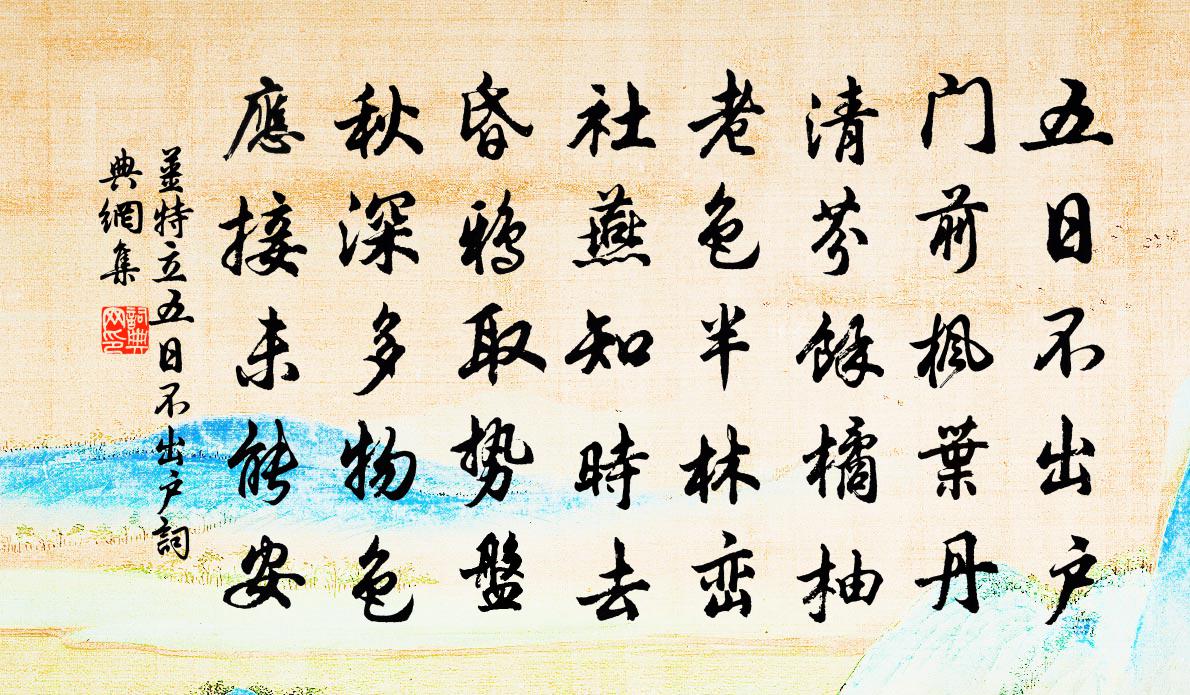 五日不出户
门前枫葉丹
清芬餘橘柚
老色半林巒
社燕知時去
昏鴉取势盤
秋深多物色
應接未能安
姜特立五日不出户詞
典網集
詞典
网印